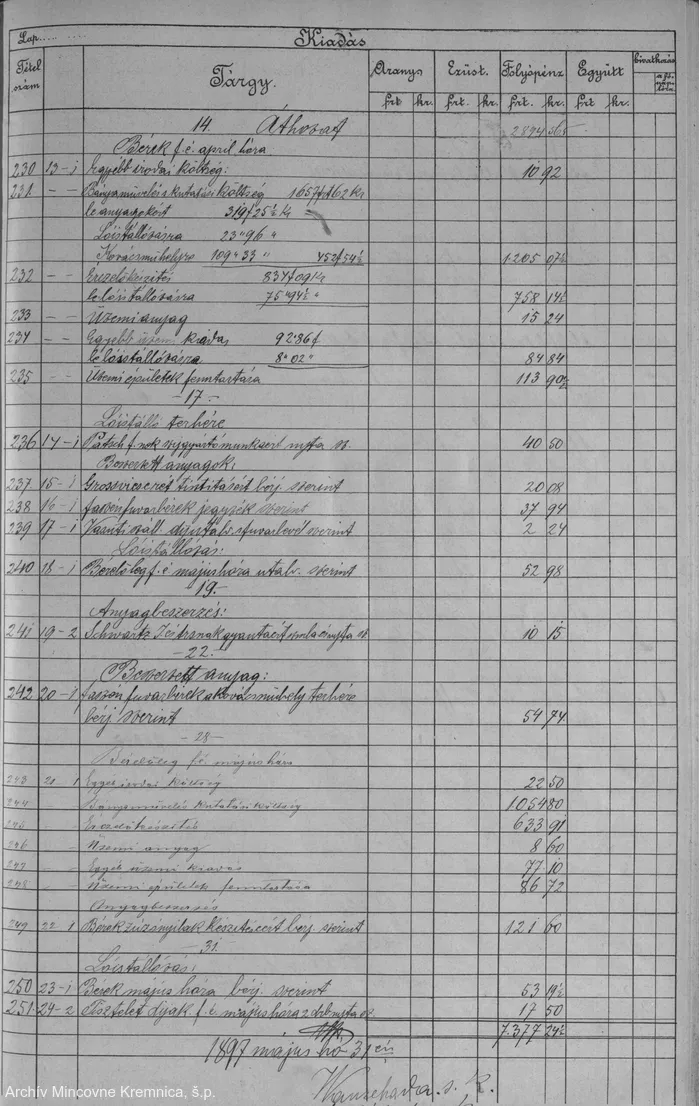 Lap. Kiadás
Tétel szám Tárgy. Arany Ezüst. Folyópénz Együtt hivatkozás
frt kr. frt. kr. frt. kr. frt kr.
14. Áthozat 2894 56
Bérek f. é. april hóra
230 13-1 Egyébb irodai költség: 10 92
231 - - Bányamüvelés kutatási költség 1657 frt 62 kr
le anyagokért 319 f 25½ kr
Lóistállóvásra 23 " 96 "
Kovácsmühelyre 109 " 33 " 452 f 54½ 1.205 07½
232 - - Erczelőkészités 834 f 09 kr
le lóistállóvásra 75 " 94½ " 758 14½
233 - - Üzemi anyag 15 24
234 - - Egyébb üzemi kiadás 92.86 f
le lóistállóvásra 8 " 02 " 84 84
235 - - Üzemi épületek fenntartása 113 90½
-17-
Lóistálló terhére
236 14-1 Patsch f. nek szijgyártó munkáért nyta sz. 40 50
Beszerzett anyagok:
237 15-1 szerint 20 08
238 16-1 fuvarbérek jegyzék szerint 37 94
239 17-1 száll. fuvarlevél szerint 2 24
Lóistállóvás:
240 18-1 f. é. május hóra utalv. szerint 52 98
19.
Anyagbeszerzés:
241 19-2 Schwartz 10 15
-22-
Beszerzett anyag:
242 20-1 fuvarbérek a kovácsmühely terhére
bérj. szerint 54 74
-28-
Bérelőleg f. é. május hóra
243 21-1 Egyéb irodai költség 22 50
244 Bányamüvelés kutatási költség 1.054 80
245 Érczelőkészités 633 91
246 Üzemi anyag 8 60
247 Egyéb üzemi kiadás 77 10
248 Üzemi épületek fenntartása 86 72
Anyagbeszerzés
249 22-1 Bérek készitéseért bérj. szerint 121 60
31.
Lóistállóvás:
250 23-1 Bérek május hóra bérj. szerint 53 19½
251 24-2 Tisztelet dijak f. é. május hóra 2 db nyta sz. 17 50
7.377 24½
1897 május hó 31 én
s. k.
Archív Mincovne Kremnica, š.p.